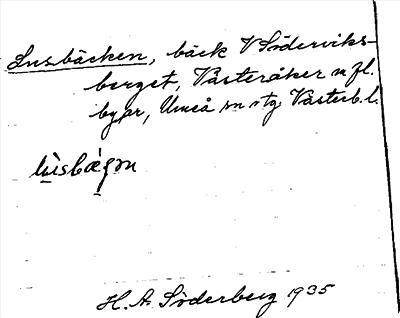 Lusbäcken, bäck V Söderviks-
berget, Västeråker m fl.
byar, Umeå sn o tg Västerb. l.
H. A. Söderberg 1935